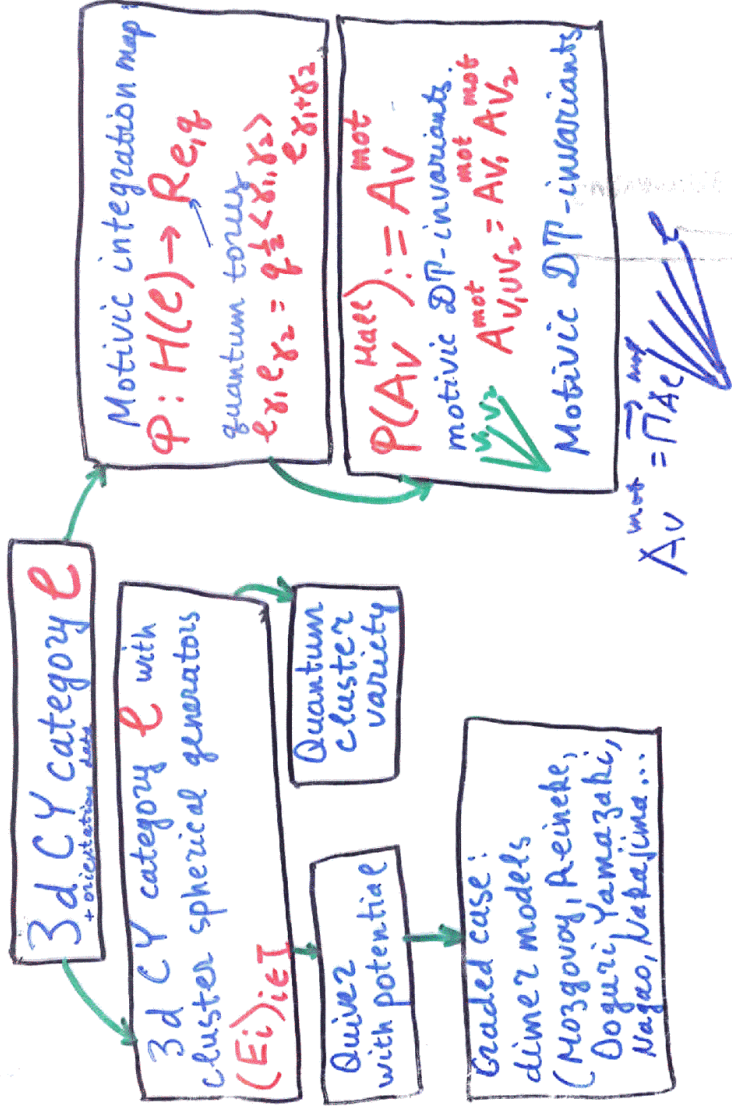 3d CY category C
+ orientation data
3d CY category C with
cluster spherical generators
(Ei)i∈I
Quiver
with potential
Quantum
cluster
variety
Graded case:
dimer models
(Mozgovoy, Reineke,
Ooguri Yamazaki,
Nagao, Nakajima...
Motivic integration map:
Φ: H(C) → R C,q
quantum torus
eγ₁ eγ₂ = q^½<γ₁,γ₂> eγ₁+γ₂
P(A_V^Hall) := A_V^mot
motivic DT-invariants.
V₁ V₂ A^mot_V₁∪V₂ = A^mot_V₁ A^mot_V₂
Motivic DT-invariants
A_V^mot = Π A_ℓ^mot
ℓ